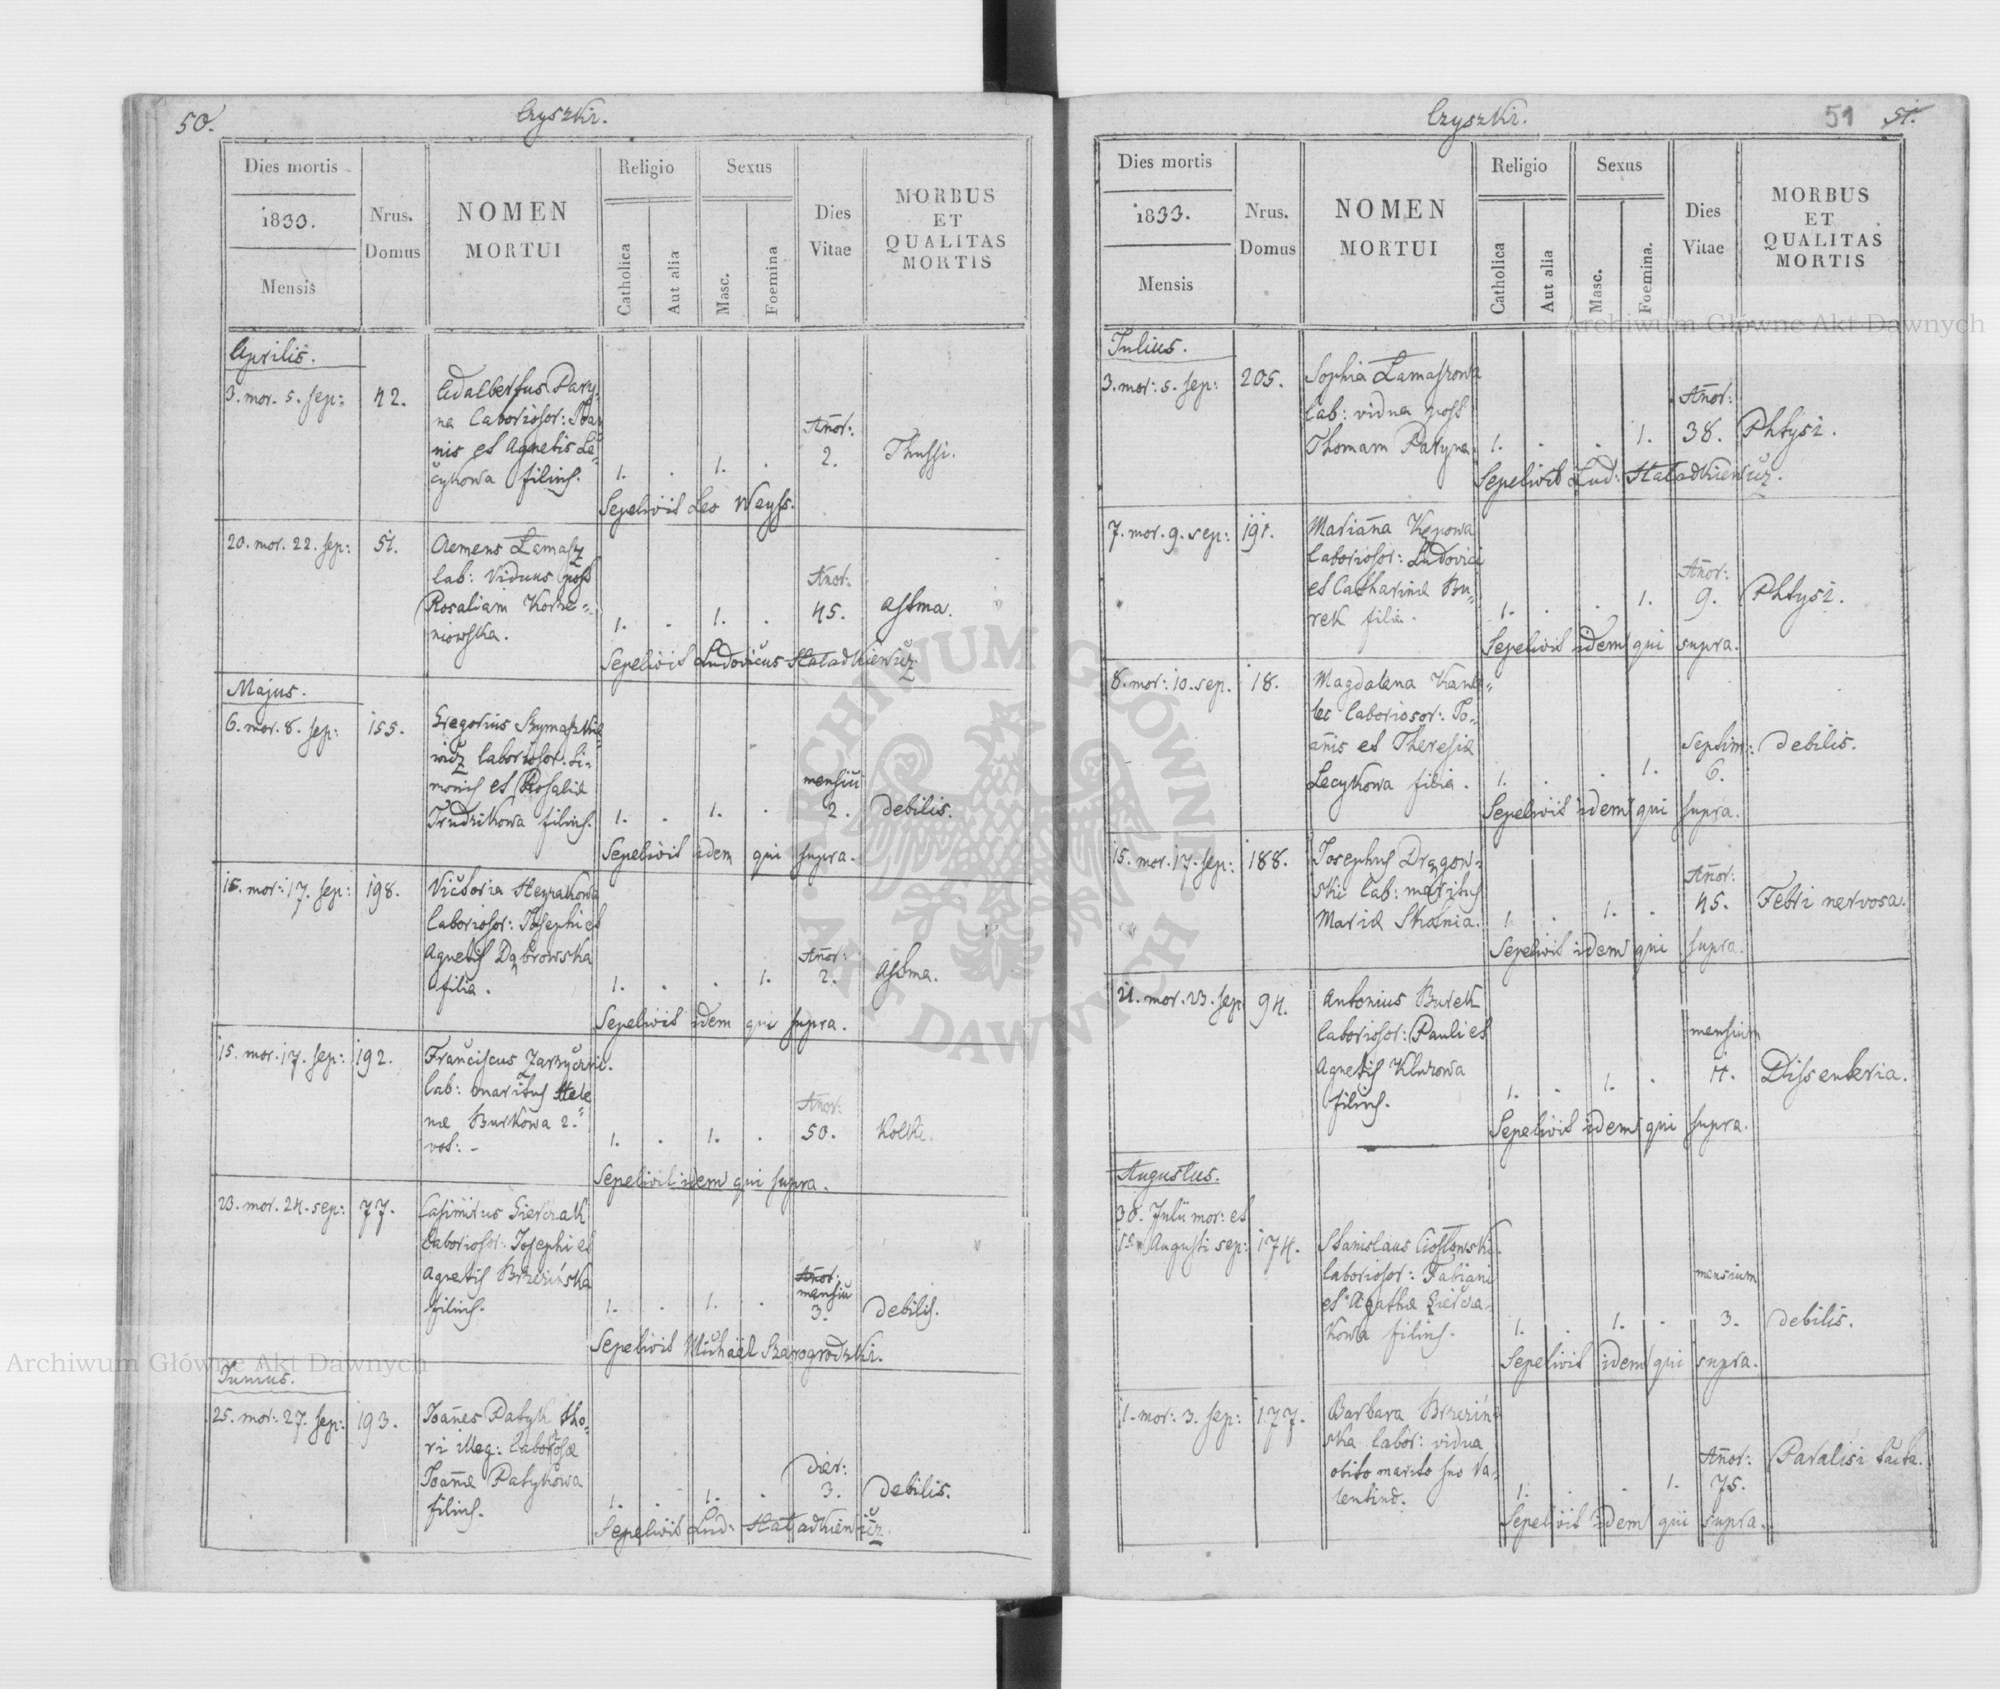 50.
Czyszki.
Dies mortis
1833.
Mensis
Nrus.
Domus
NOMEN
MORTUI
Religio
Catholica
Aut alia
Sexus
Masc.
Foemina
Dies
Vitae
MORBUS
ET
QUALITAS
MORTIS
Aprilis.
3. mor. 5. sep:
42.
Adalbertus Paty-
na laboriosor: Ioan
nis et Agnetis Le-
cykowa filius.
1. . 1. .
Añor:
2.
Thussi.
Sepelivit Leo Weyss.
20. mor. 22. sep:
51.
Clemens Łamasz
lab: viduus post
Rosaliam Korze-
niowska.
1. . 1. .
Añor:
45.
Astma.
Sepelivit Ludovicus Hatadkiewicz
Majus.
6. mor. 8. sep:
155.
Gregorius Szymaszkie-
wicz laboriosor. Si-
monis et Rosaliæ
Trudzikowa filius.
1. . 1. .
mensiū
2.
debilis.
Sepelivit idem qui supra.
15. mor: 17. sep:
198.
Victoria
laboriosor: Iosephi et
Agnetis Dąbrowska
filia.
1. . . 1.
Añor:
2.
Astma.
Sepelivit idem qui supra.
15. mor. 17. sep:
192.
Franciscus Zarzyczni.
lab: maritus Hele
næ Burkowa 2.
vot: -
1. . 1. .
Añor:
50.
Kolki.
Sepelivit idem qui supra.
23. mor. 24. sep:
77.
Casimirus Gierczak
laboriosor: Iosephi et
Agnetis Brzezińska
filius.
1. . 1. .
Añor:
mensiū
3.
debilis.
Sepelivit Michaël Szarogrodzki.
Iunius.
25. mor: 27. sep:
193.
Ioañes Patyk tho-
ri illeg: laboriosæ
Ioañæ Patykowa
filius.
1. . 1. .
dier:
3.
debilis.
Sepelivit Lud: Hatadkiewicz.
Czyszki.
51 51.
Dies mortis
1833.
Mensis
Nrus.
Domus
NOMEN
MORTUI
Religio
Catholica
Aut alia
Sexus
Masc.
Foemina.
Dies
Vitae
MORBUS
ET
QUALITAS
MORTIS
Iulius.
3. mor: 5. sep:
205.
Sophia Łamaszowa
lab: vidua post
Thomam Patyna.
1. . . 1.
Añor:
38.
Phtysi.
Sepelivit Lud: Hatadkiewicz.
7. mor. 9. sep:
191.
Mariañа Kępowa
laboriosor: Ludovici
et Catharinæ Bu-
rek filia.
1. . . 1.
Añor:
9.
Phtysi.
Sepelivit idem qui supra.
8. mor: 10. sep.
18.
Magdalena
laboriosor: Io-
añis et Theresiæ
Lecykowa filia.
1. . . 1.
Septim:
6.
debilis.
Sepelivit idem qui supra.
15. mor. 17. sep:
188.
Iosephus Drągow-
ski lab: maritus
Mariæ
1. . 1. .
Añor:
45.
Febri nervosa.
Sepelivit idem qui supra.
21. mor. 23. sep
94.
Antonius Burek
laboriosor: Pauli et
Agnetis Kluzowa
filius.
1. . 1. .
mensium
4.
Dissenteria.
Sepelivit idem qui supra.
Augustus.
30. Julii mor: et
1. Augusti sep:
174.
Stanislaus
laboriosor: Fabiani
et Agathæ Giercza-
kowa filius.
1. . 1. .
mensium
3.
debilis.
Sepelivit idem qui supra.
1. mor: 3. sep:
177.
Barbara Brzeziń-
ska labor: vidua
obito marito suo Va-
lentino.
1. . . 1.
Añor:
75.
Paralisi tacta.
Sepelivit idem qui supra.
Archiwum Główne Akt Dawnych
Archiwum Główne Akt Dawnych
ARCHIWUM GŁÓWNE AKT DAWNYCH